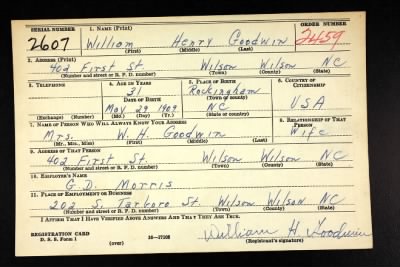 SERIAL NUMBER 1. NAME (Print) ORDER NUMBER
2607 William Henry Goodwin 2459
(First) (Middle) (Last)
2. ADDRESS (Print)
402 First St. Wilson Wilson NC
(Number and street or R. F. D. number) (Town) (County) (State)
3. TELEPHONE 4. AGE IN YEARS 5. PLACE OF BIRTH 6. COUNTRY OF CITIZENSHIP
31 Rockingham
DATE OF BIRTH (Town or county)
May 29 1909 NC USA
(Exchange) (Number) (Mo.) (Day) (Yr.) (State or country)
7. NAME OF PERSON WHO WILL ALWAYS KNOW YOUR ADDRESS 8. RELATIONSHIP OF THAT PERSON
Mrs. W. H. Goodwin Wife
(Mr., Mrs., Miss) (First) (Middle) (Last)
9. ADDRESS OF THAT PERSON
402 First St. Wilson Wilson NC
(Number and street or R. F. D. number) (Town) (County) (State)
10. EMPLOYER'S NAME
G. D. Morris
11. PLACE OF EMPLOYMENT OR BUSINESS
202 S. Tarboro St. Wilson Wilson NC
(Number and street or R. F. D. number) (Town) (County) (State)
I AFFIRM THAT I HAVE VERIFIED ABOVE ANSWERS AND THAT THEY ARE TRUE.
REGISTRATION CARD William H Goodwin
D. S. S. Form 1 (over) 16—17105 (Registrant's signature)